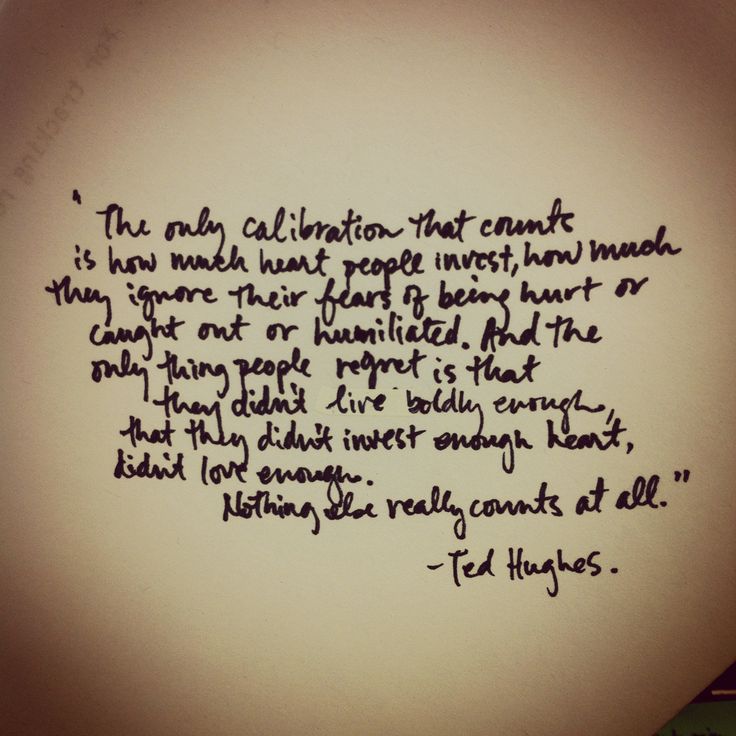 For tracking
"The only calibration that counts
is how much heart people invest, how much
they ignore their fears of being hurt or
caught out or humiliated. And the
only thing people regret is that
they didn't live boldly enough,
that they didn't invest enough heart,
didn't love enough.
Nothing else really counts at all."
-Ted Hughes.